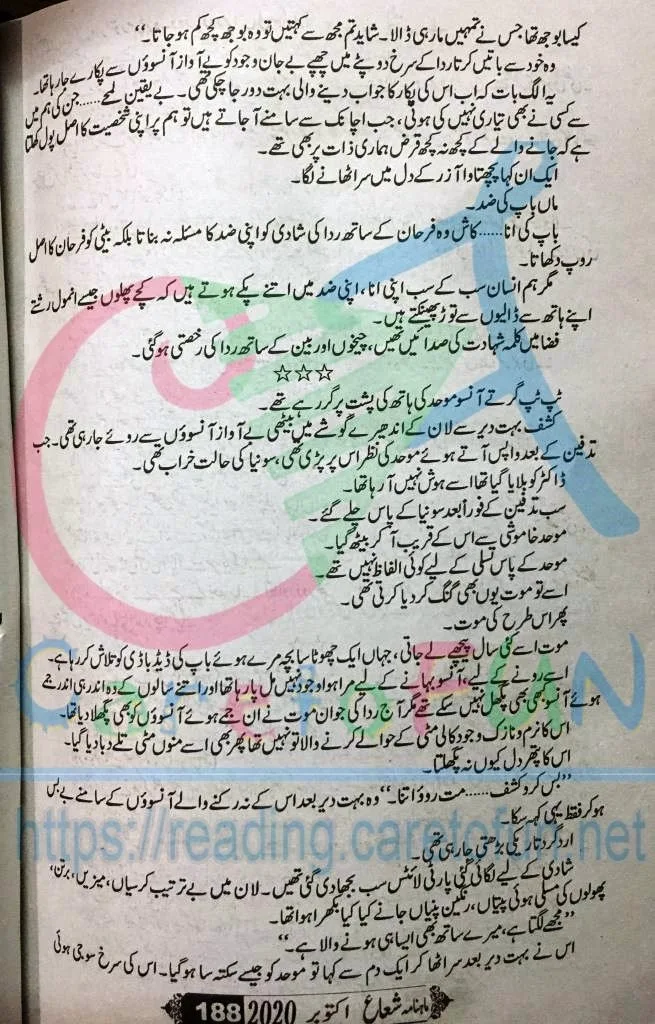 کیسا بوجھ تھا جس نے تمہیں مار ہی ڈالا۔ شاید تم مجھ سے کہتیں تو وہ بوجھ کچھ کم ہو جاتا۔‘‘
وہ خود سے باتیں کرتا ردا کے سرخ دوپٹے میں چھپے بے جان وجود کو بے آواز آنسوؤں سے پکارے جا رہا تھا۔
یہ الگ بات کہ اب اس کی پکار کا جواب دینے والی بہت دور جا چکی تھی۔ بے یقین لمحے...... جن کی ہم میں
سے کسی نے بھی تیاری نہیں کی ہوتی، جب اچانک سے سامنے آجاتے ہیں تو ہم پر اپنی شخصیت کا اصل پول کھلتا
ہے کہ جانے والے کے کچھ نہ کچھ قرض ہماری ذات پر بھی تھے۔
ایک ان کہا پچھتاوا آزر کے دل میں سر اٹھانے لگا۔
ماں باپ کی ضد۔
باپ کی انا...... کاش وہ فرحان کے ساتھ ردا کی شادی کو اپنی ضد کا مسئلہ نہ بناتا بلکہ بیٹی کو فرحان کا اصل
روپ دکھاتا۔
مگر ہم انسان سب کے سب اپنی انا، اپنی ضد میں اتنے پکے ہوتے ہیں کہ کچے پھلوں جیسے انمول رشتے
اپنے ہاتھ سے ڈالیوں سے توڑ پھینکتے ہیں۔
فضا میں کلمہ شہادت کی صدائیں تھیں، چیخوں اور بین کے ساتھ ردا کی رخصتی ہوگئی۔
☆☆☆
ٹپ ٹپ گرتے آنسو موحد کی ہاتھ کی پشت پر گر رہے تھے۔
کشف بہت دیر سے لان کے اندھیرے گوشے میں بیٹھی بے آواز آنسوؤں سے روئے جا رہی تھی۔ جب
تدفین کے بعد واپس آتے ہوئے موحد کی نظر اس پر پڑی تھی، سونیا کی حالت خراب تھی۔
ڈاکٹر کو بلایا گیا تھا اسے ہوش نہیں آرہا تھا۔
سب تدفین کے فوراً بعد سونیا کے پاس چلے گئے۔
موحد خاموشی سے اس کے قریب آکر بیٹھ گیا۔
موحد کے پاس تسلی کے لیے کوئی الفاظ نہیں تھے۔
اسے تو موت یوں بھی گنگ کر دیا کرتی تھی۔
پھر اس طرح کی موت۔
موت اسے کئی سال پیچھے لے جاتی، جہاں ایک چھوٹا سا بچہ مرے ہوئے باپ کی ڈیڈ باڈی کو تلاش کر رہا ہے۔
اسے رونے کے لیے، آنسو بہانے کے لیے مرا ہوا وجود نہیں مل پا رہا تھا اور اتنے سالوں کے وہ اندر ہی اندر جمے
ہوئے آنسو کبھی بھی پگھل نہیں سکے تھے مگر آج ردا کی جوان موت نے ان جمے ہوئے آنسوؤں کو بھی پگھلا دیا تھا۔
اس کا نرم و نازک وجود کالی مٹی کے حوالے کرنے والا تو نہیں تھا پھر بھی اسے منوں مٹی تلے دبا دیا گیا۔
اس کا پتھر دل کیوں نہ پگھلتا۔
’’بس کرو کشف...... مت روؤ اتنا۔‘‘ وہ بہت دیر بعد اس کے نہ رکنے والے آنسوؤں کے سامنے بے بس
ہو کر فقط یہی کہہ سکا۔
اردگرد تاریکی بڑھتی جا رہی تھی۔
شادی کے لیے لگائی گئی پارٹی لائٹس سب بجھا دی گئی تھیں۔ لان میں بے ترتیب کرسیاں، میزیں، برتن،
پھولوں کی مسلی ہوئی پتیاں، رنگین پنیاں جانے کیا کیا بکھرا ہوا تھا۔
’’مجھے لگتا ہے، میرے ساتھ بھی ایسا ہی ہونے والا ہے۔‘‘
اس نے بہت دیر بعد سر اٹھا کر ایک دم سے کہا تو موحد کو جیسے سکتہ سا ہوگیا۔ اس کی سرخ سوجی ہوئی
ماہنامہ شعاع اکتوبر 2020 188
CaretoFUN
https://reading.caretofun.net